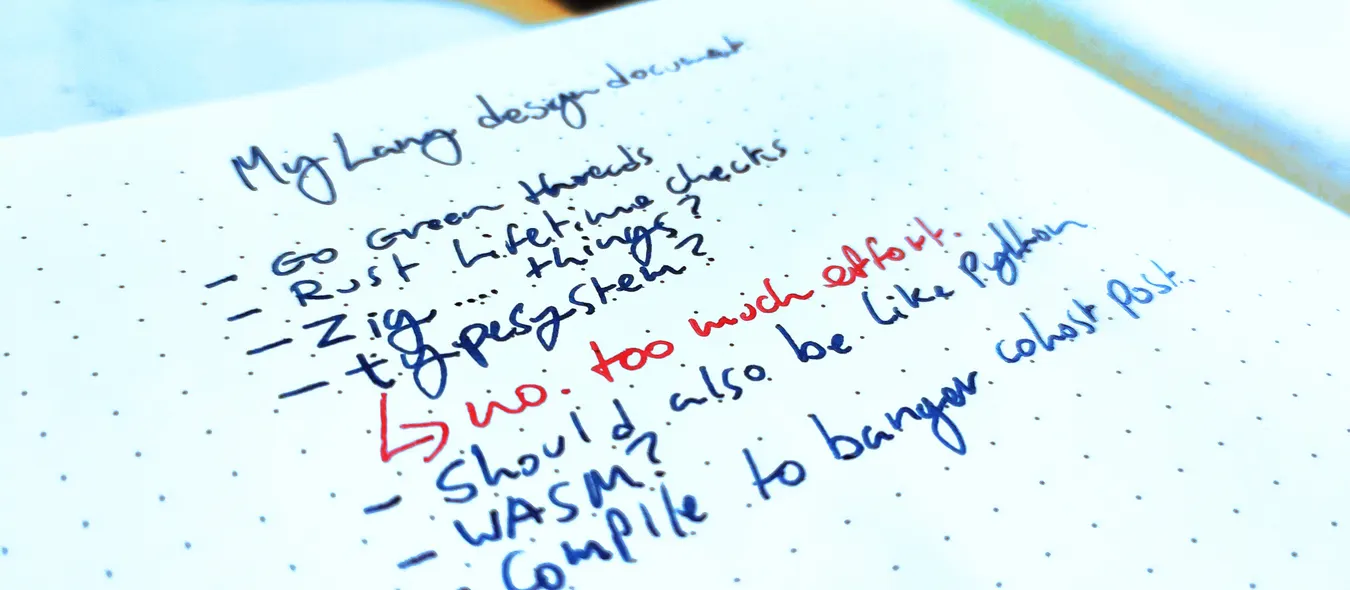 My Lang design document
- Go Green threads
- Rust Lifetime checks
- Zig .... things?
- typesystem?
↳ no. too much effort.
- Should also be like Python
- WASM?
- Compile to banger cohost post.